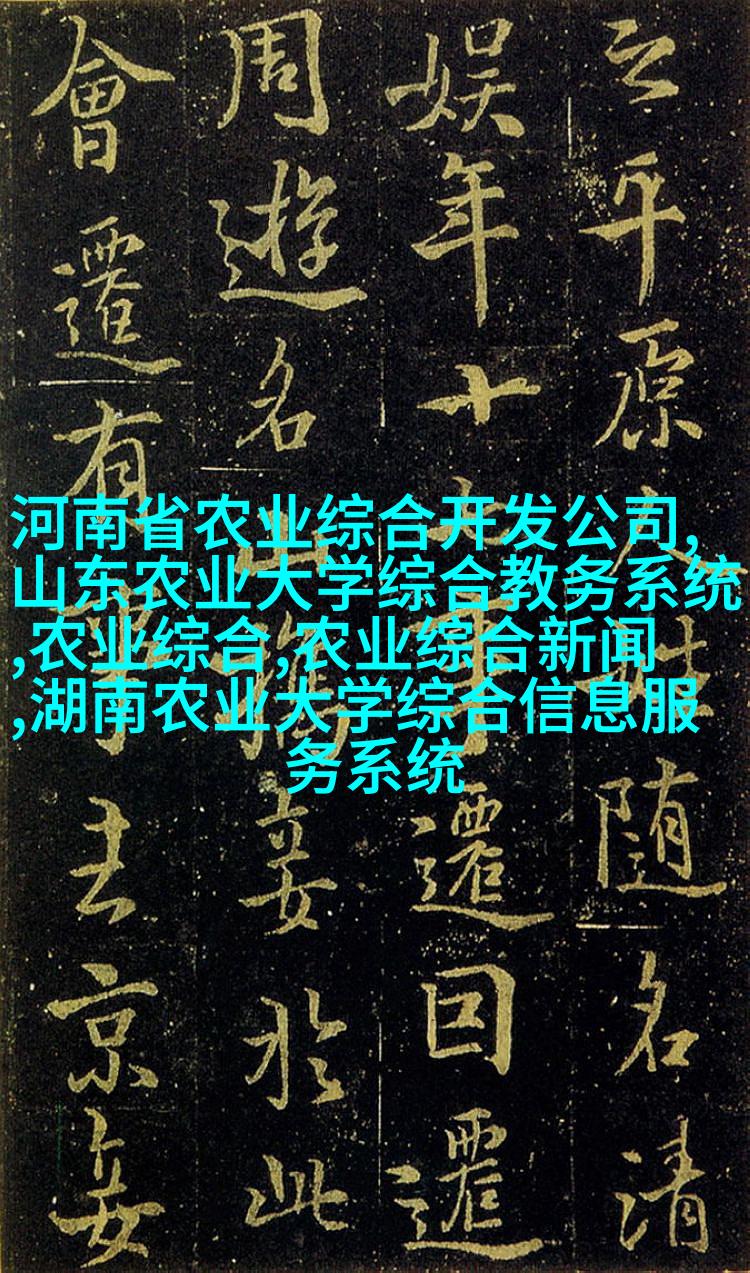 河南省农业综合开发公司,
山东农业大学综合教务系统
,农业综合,农业综合新闻
,湖南农业大学综合信息服
务系统
之平原人姓随名清
娱年十七事遷回遷
周遊名山携妾於此
會遷有京妾